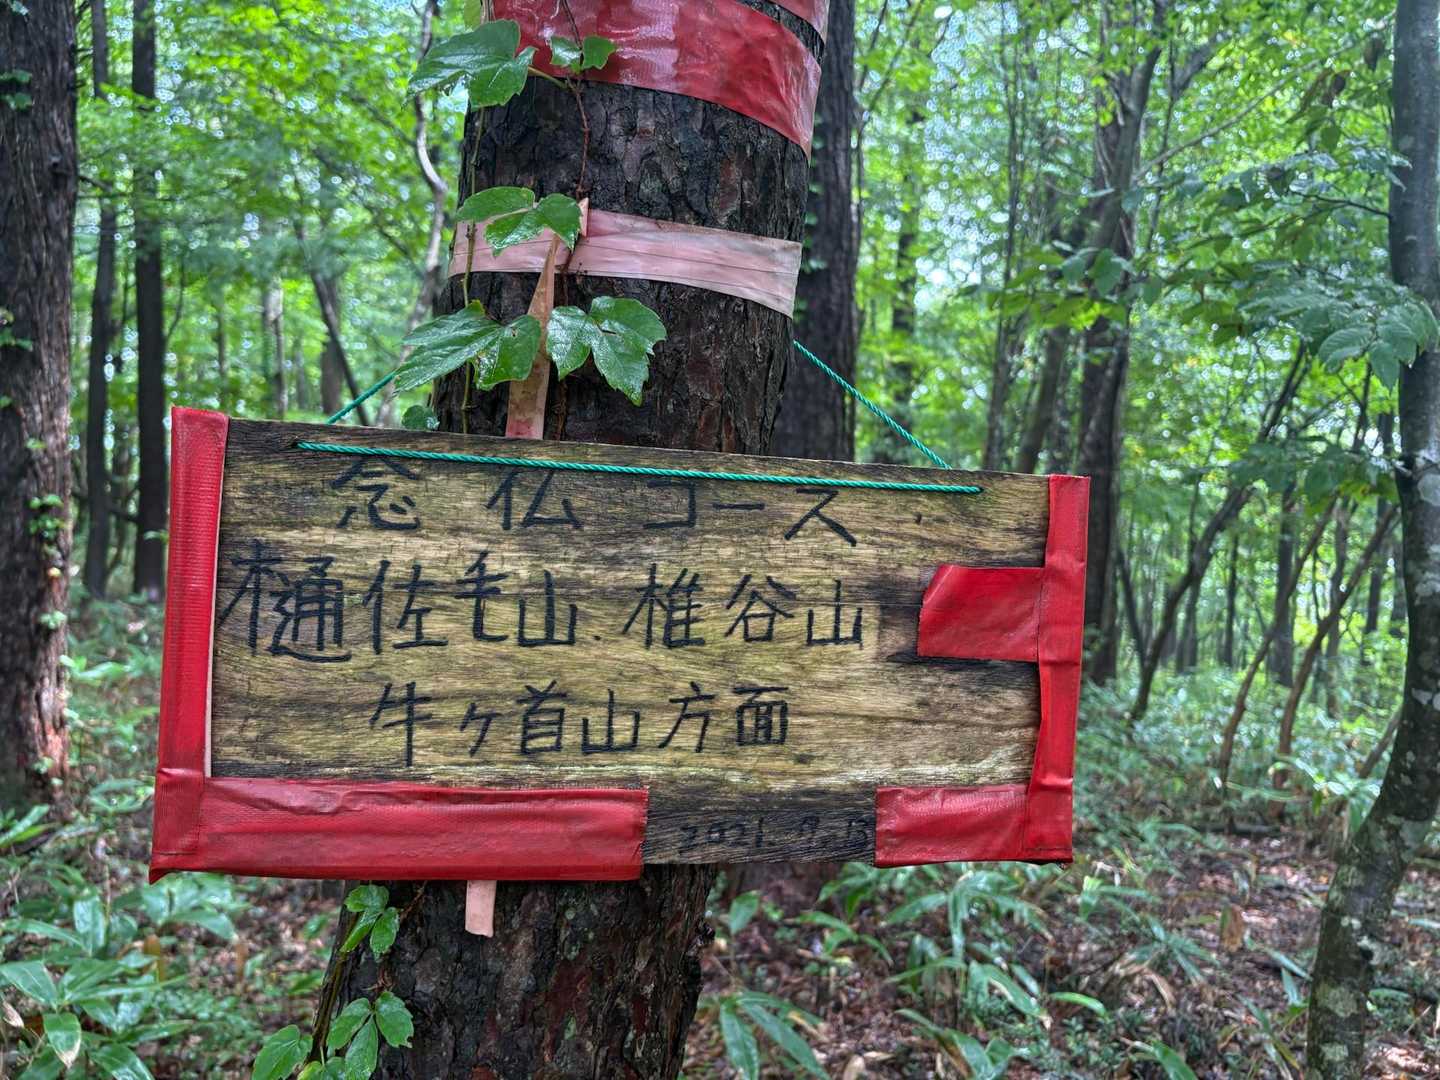 念仏コース
樋佐毛山.椎谷山
牛ヶ首山方面
2021.9.13